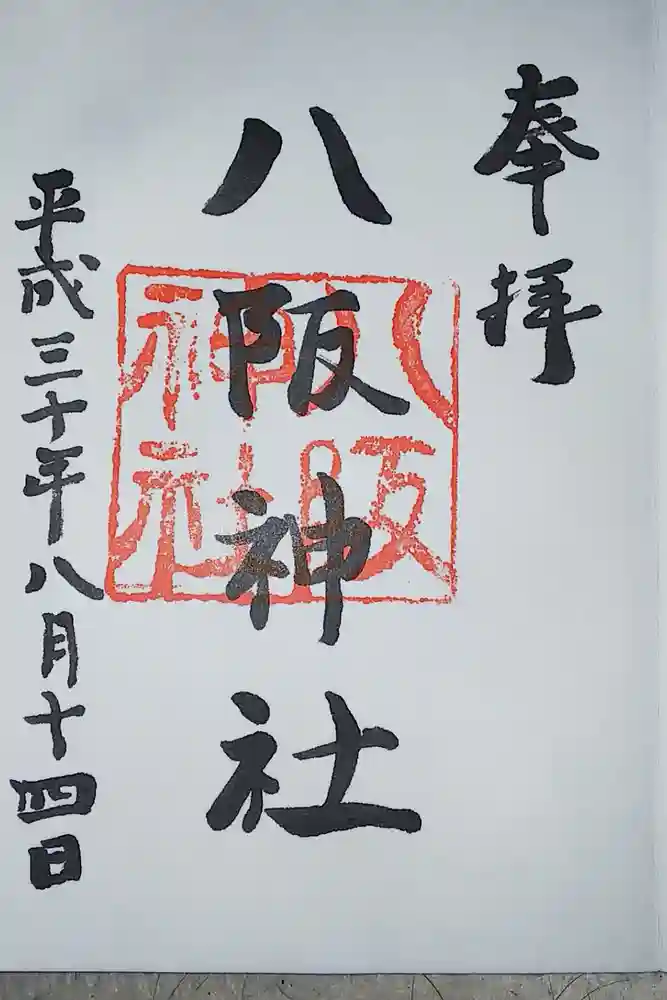 奉拝
八阪神社
八阪
神社
平成三十年八月十四日